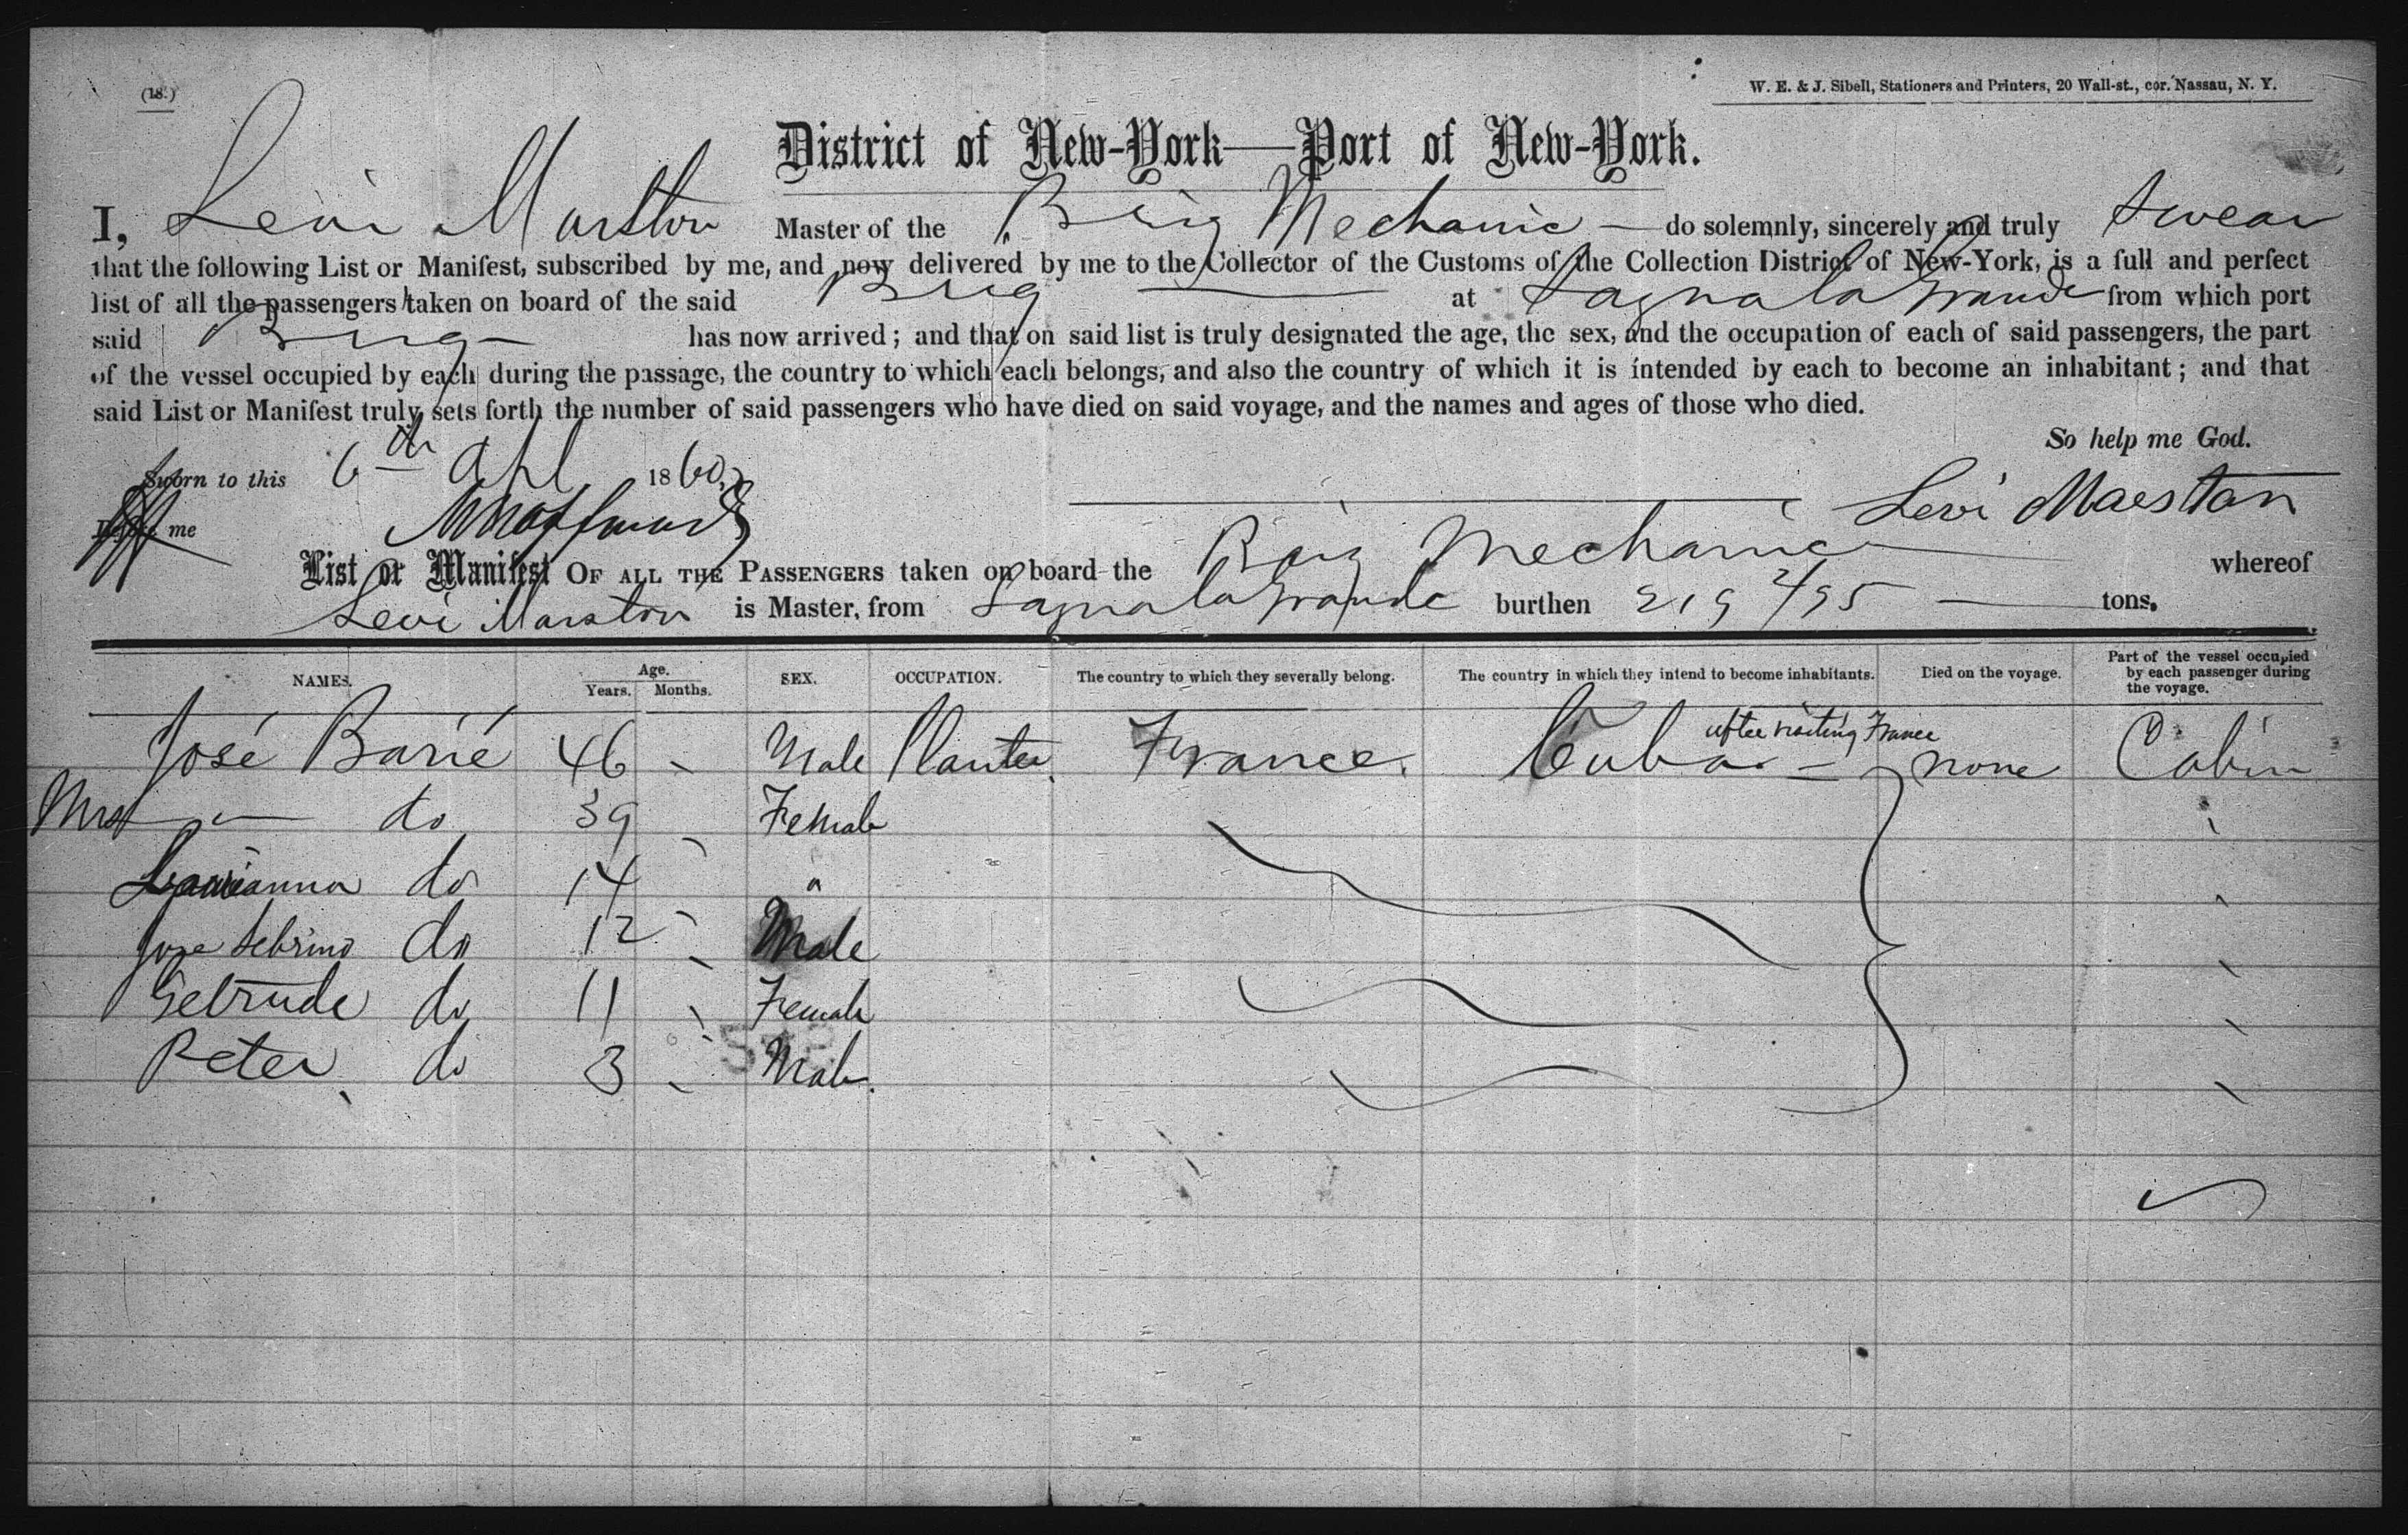 (18.)
W. E. & J. Sibell, Stationers and Printers, 20 Wall-st., cor. Nassau, N. Y.
District of New-York—Port of New-York.
I, Levi Marston Master of the Brig Mechanic — do solemnly, sincerely and truly swear
that the following List or Manifest, subscribed by me, and now delivered by me to the Collector of the Customs of the Collection District of New-York, is a full and perfect
list of all the passengers taken on board of the said Brig — at Sagua la Grande from which port
said Brig has now arrived; and that on said list is truly designated the age, the sex, and the occupation of each of said passengers, the part
of the vessel occupied by each during the passage, the country to which each belongs, and also the country of which it is intended by each to become an inhabitant; and that
said List or Manifest truly sets forth the number of said passengers who have died on said voyage, and the names and ages of those who died.
So help me God.
Sworn to this 6th Apl 1860
Levi Marston
Before me
List or Manifest OF ALL THE PASSENGERS taken on board the Brig Mechanic — whereof
Levi Marston is Master, from Sagua la Grande burthen 219 2/95 — tons.
NAMES. Age. Years. Months. SEX. OCCUPATION. The country to which they severally belong. The country in which they intend to become inhabitants. Died on the voyage. Part of the vessel occupied by each passenger during the voyage.
José Barié 46 - Male Planter. France. Cuba after visiting France - none Cabin
Mrs — do 39 Female
do 14 "
Jose do 12 - Male
Getrude do 11 Female
Peter do 3 - Male.